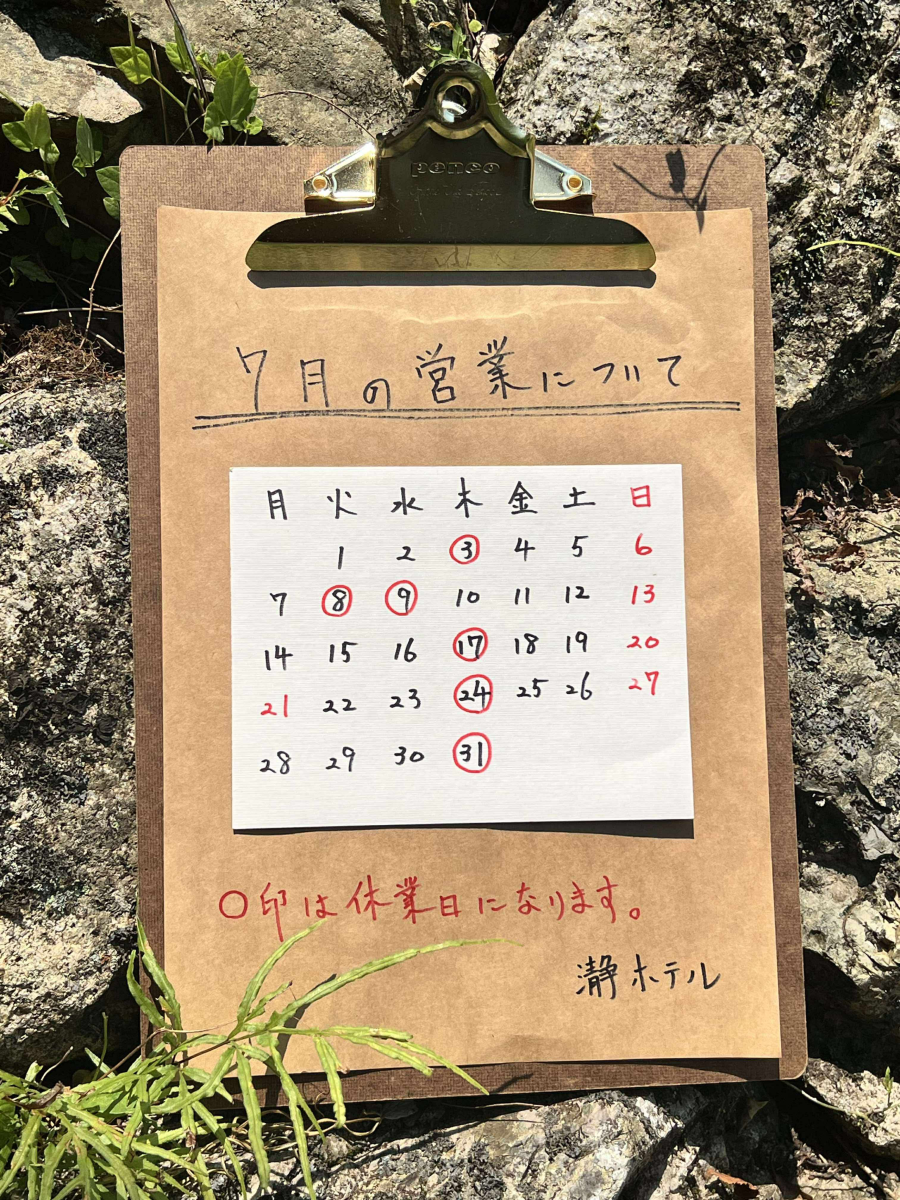 penco
7月の営業について
月 火 水 木 金 土 日
1 2 3 4 5 6
7 8 9 10 11 12 13
14 15 16 17 18 19 20
21 22 23 24 25 26 27
28 29 30 31
〇印は休業日になります。
瀞ホテル